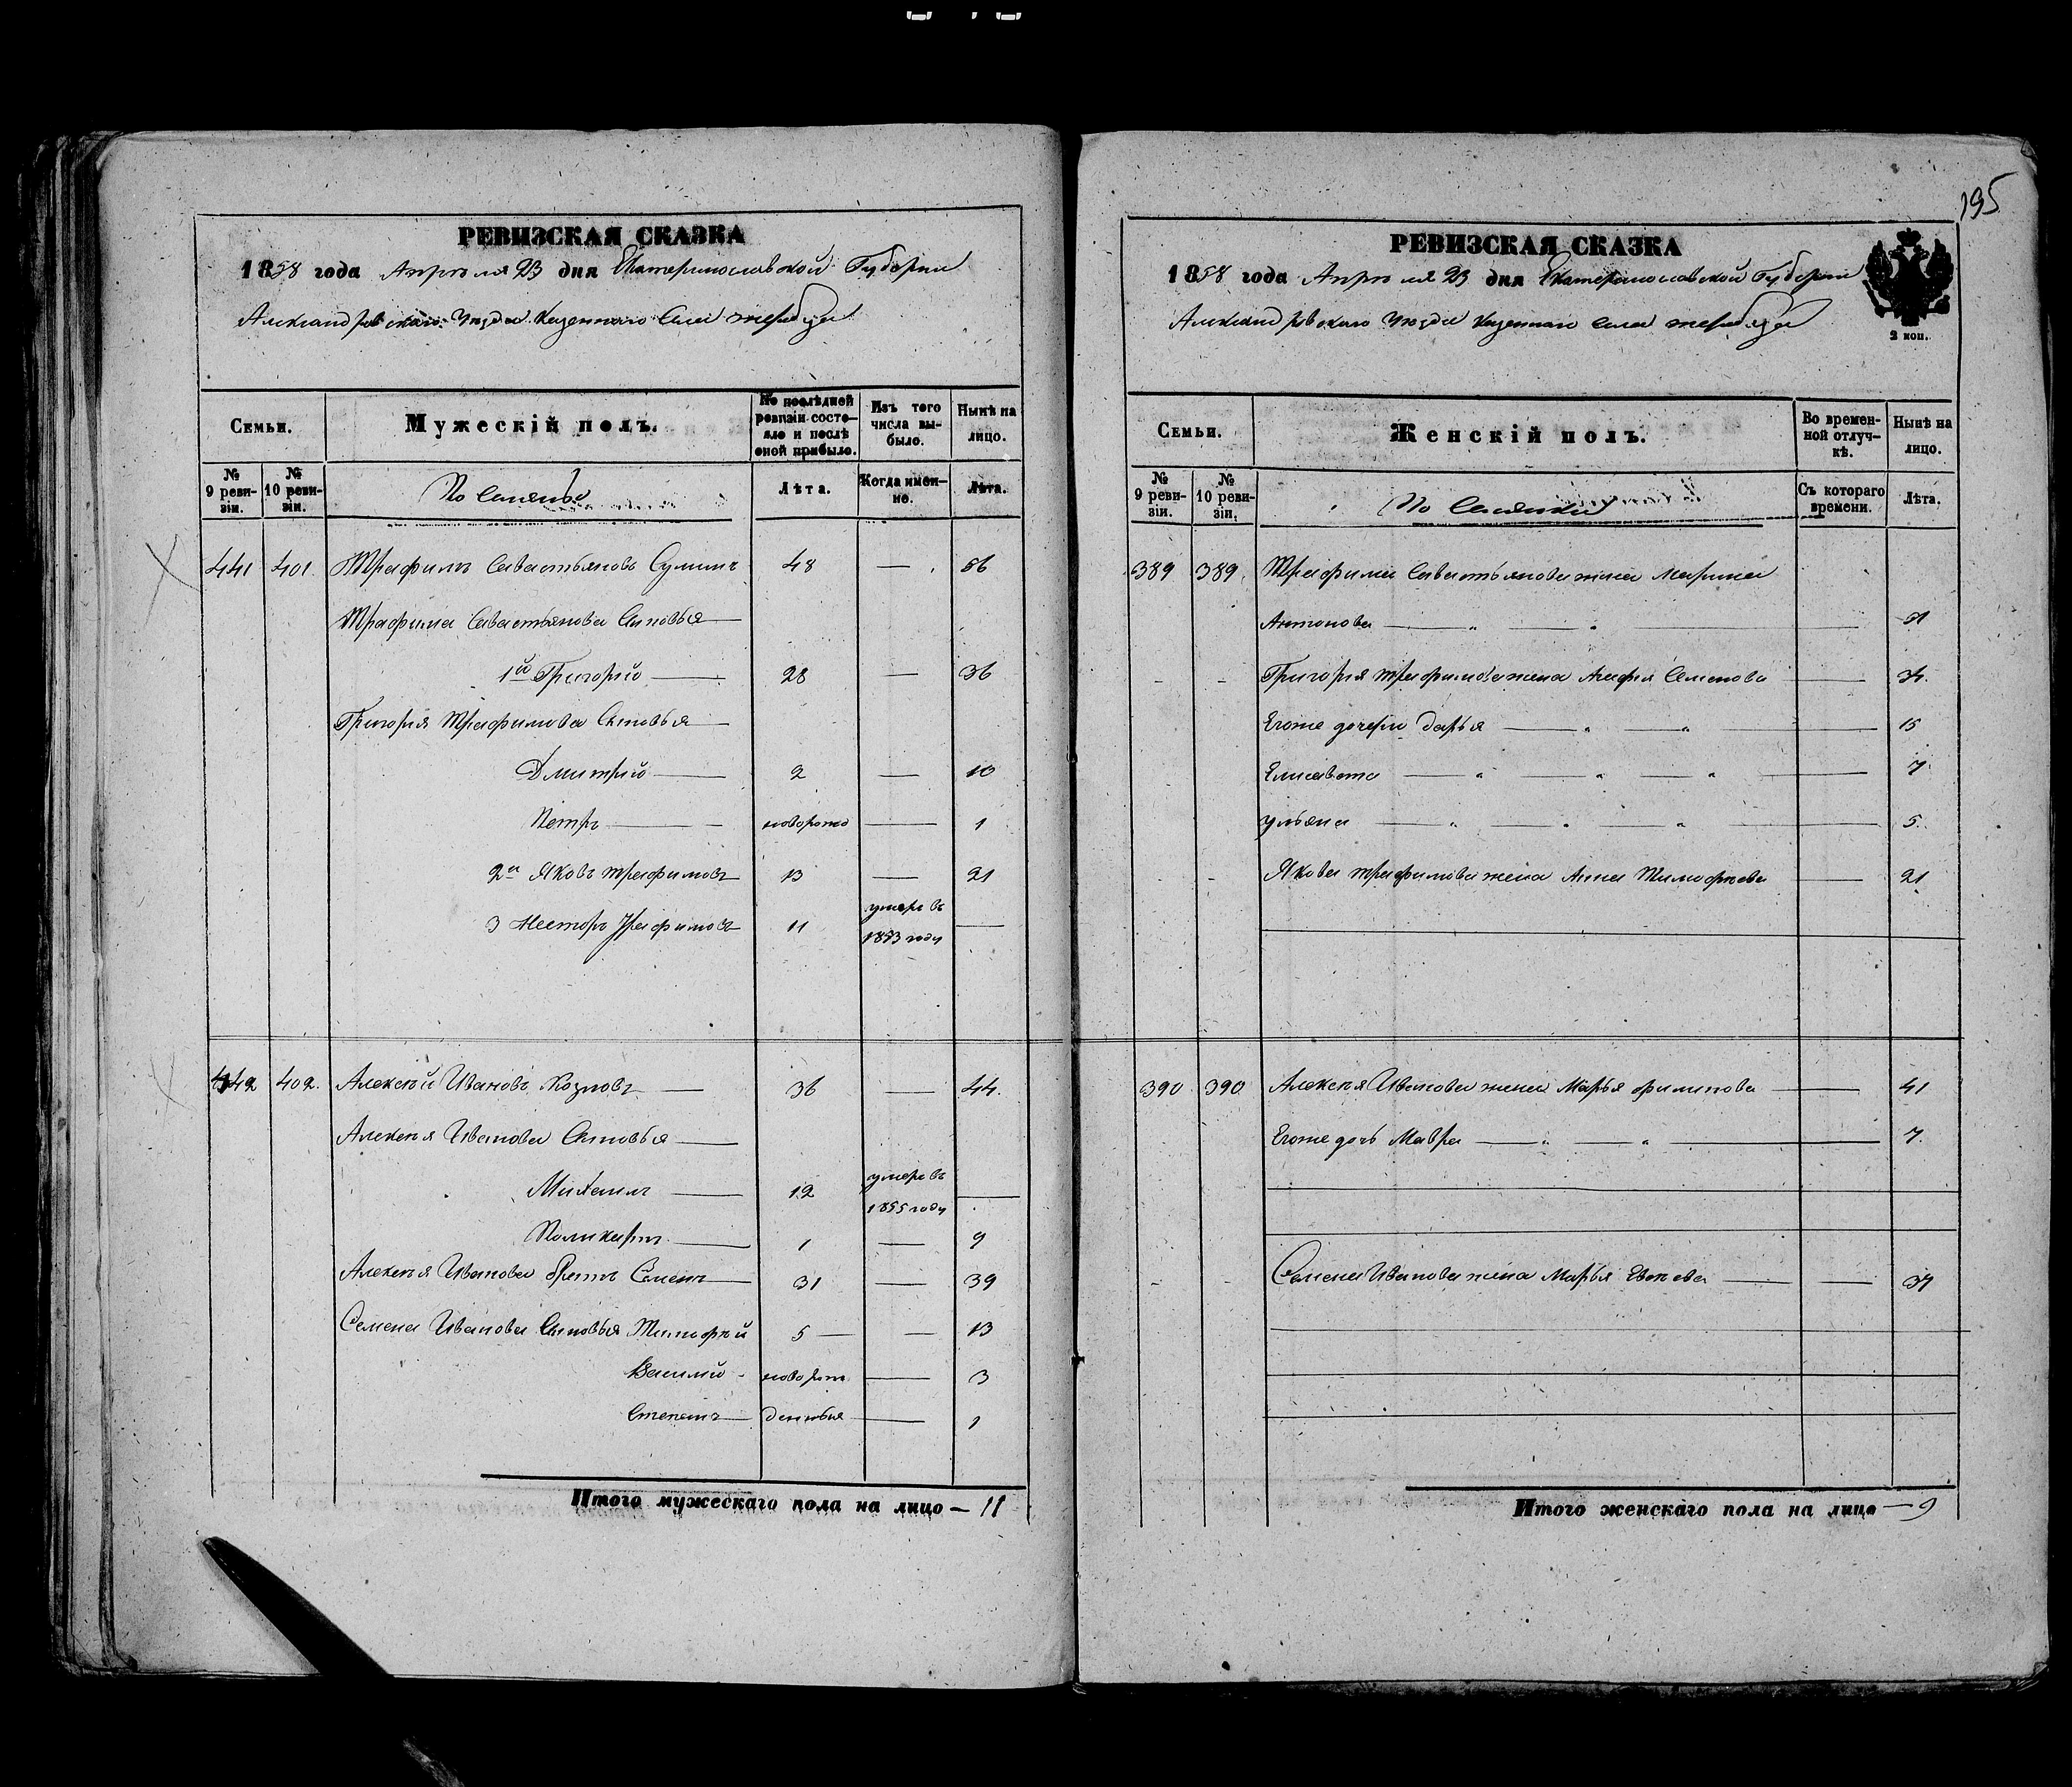 195
РЕВИЗСКАЯ СКАЗКА
1858 года Апреля 23 дня Екатеринославской Губернии
Александровскаго Уезда Казеннаго Села Жеребца
Семьи.
Мужескій полъ.
По послѣдней ревизіи состояло и послѣ оной прибыло.
Изъ того числа выбыло.
Нынѣ на лицо.
№ 9 ревизіи.
№ 10 ревизіи.
Лѣта.
Когда именно.
Лѣта.
441 401. Трафимъ Савастьяновъ Сулимъ 48 — 56
Трафима Савастьянова Сыновья
1й Григорій 28 — 36
Григорія Трафимова Сыновья
Дмитрій 2 — 10
Петръ новорожд — 1
2й Яковъ Трафимовъ 13 — 21
3 Несторъ Трафимовъ 11 умеръ въ 1853 году —
442 402. Алексѣй Ивановъ Козловъ 36 — 44.
Алексѣя Иванова Сыновья
Михаилъ 12 умеръ въ 1855 году —
Поликарпъ 1 — 9
Алексѣя Иванова братъ Семенъ 31 — 39
Семена Иванова Сыновья Тимофѣй 5 — — 13
Василий новорож — 3
Степанъ — 1
Итого мужескаго пола на лицо — 11
РЕВИЗСКАЯ СКАЗКА
1858 года Апреля 23 дня Екатеринославской Губернии
Александровскаго Уезда Казеннаго села Жеребца
2 коп.
Семьи.
Женскій полъ.
Во временной отлучкѣ.
Нынѣ на лицо.
№ 9 ревизіи.
№ 10 ревизіи.
Съ котораго времени.
Лѣта.
389 389. Трафима Савастьянова жена Марина
Антонова — 51
Григорія Трафимова жена Агафія Семенова — 34.
Егоже дочери Дарья — 15
Елисавета — 7
Ульяна — 5.
Якова Трафимова жена Анна Тимофеева — 21
390 390 Алексѣя Иванова жена Марья Филипова — 41
Егоже дочь Мавра — 7.
Семена Иванова жена Марья — 37
Итого женскаго пола на лицо — 9